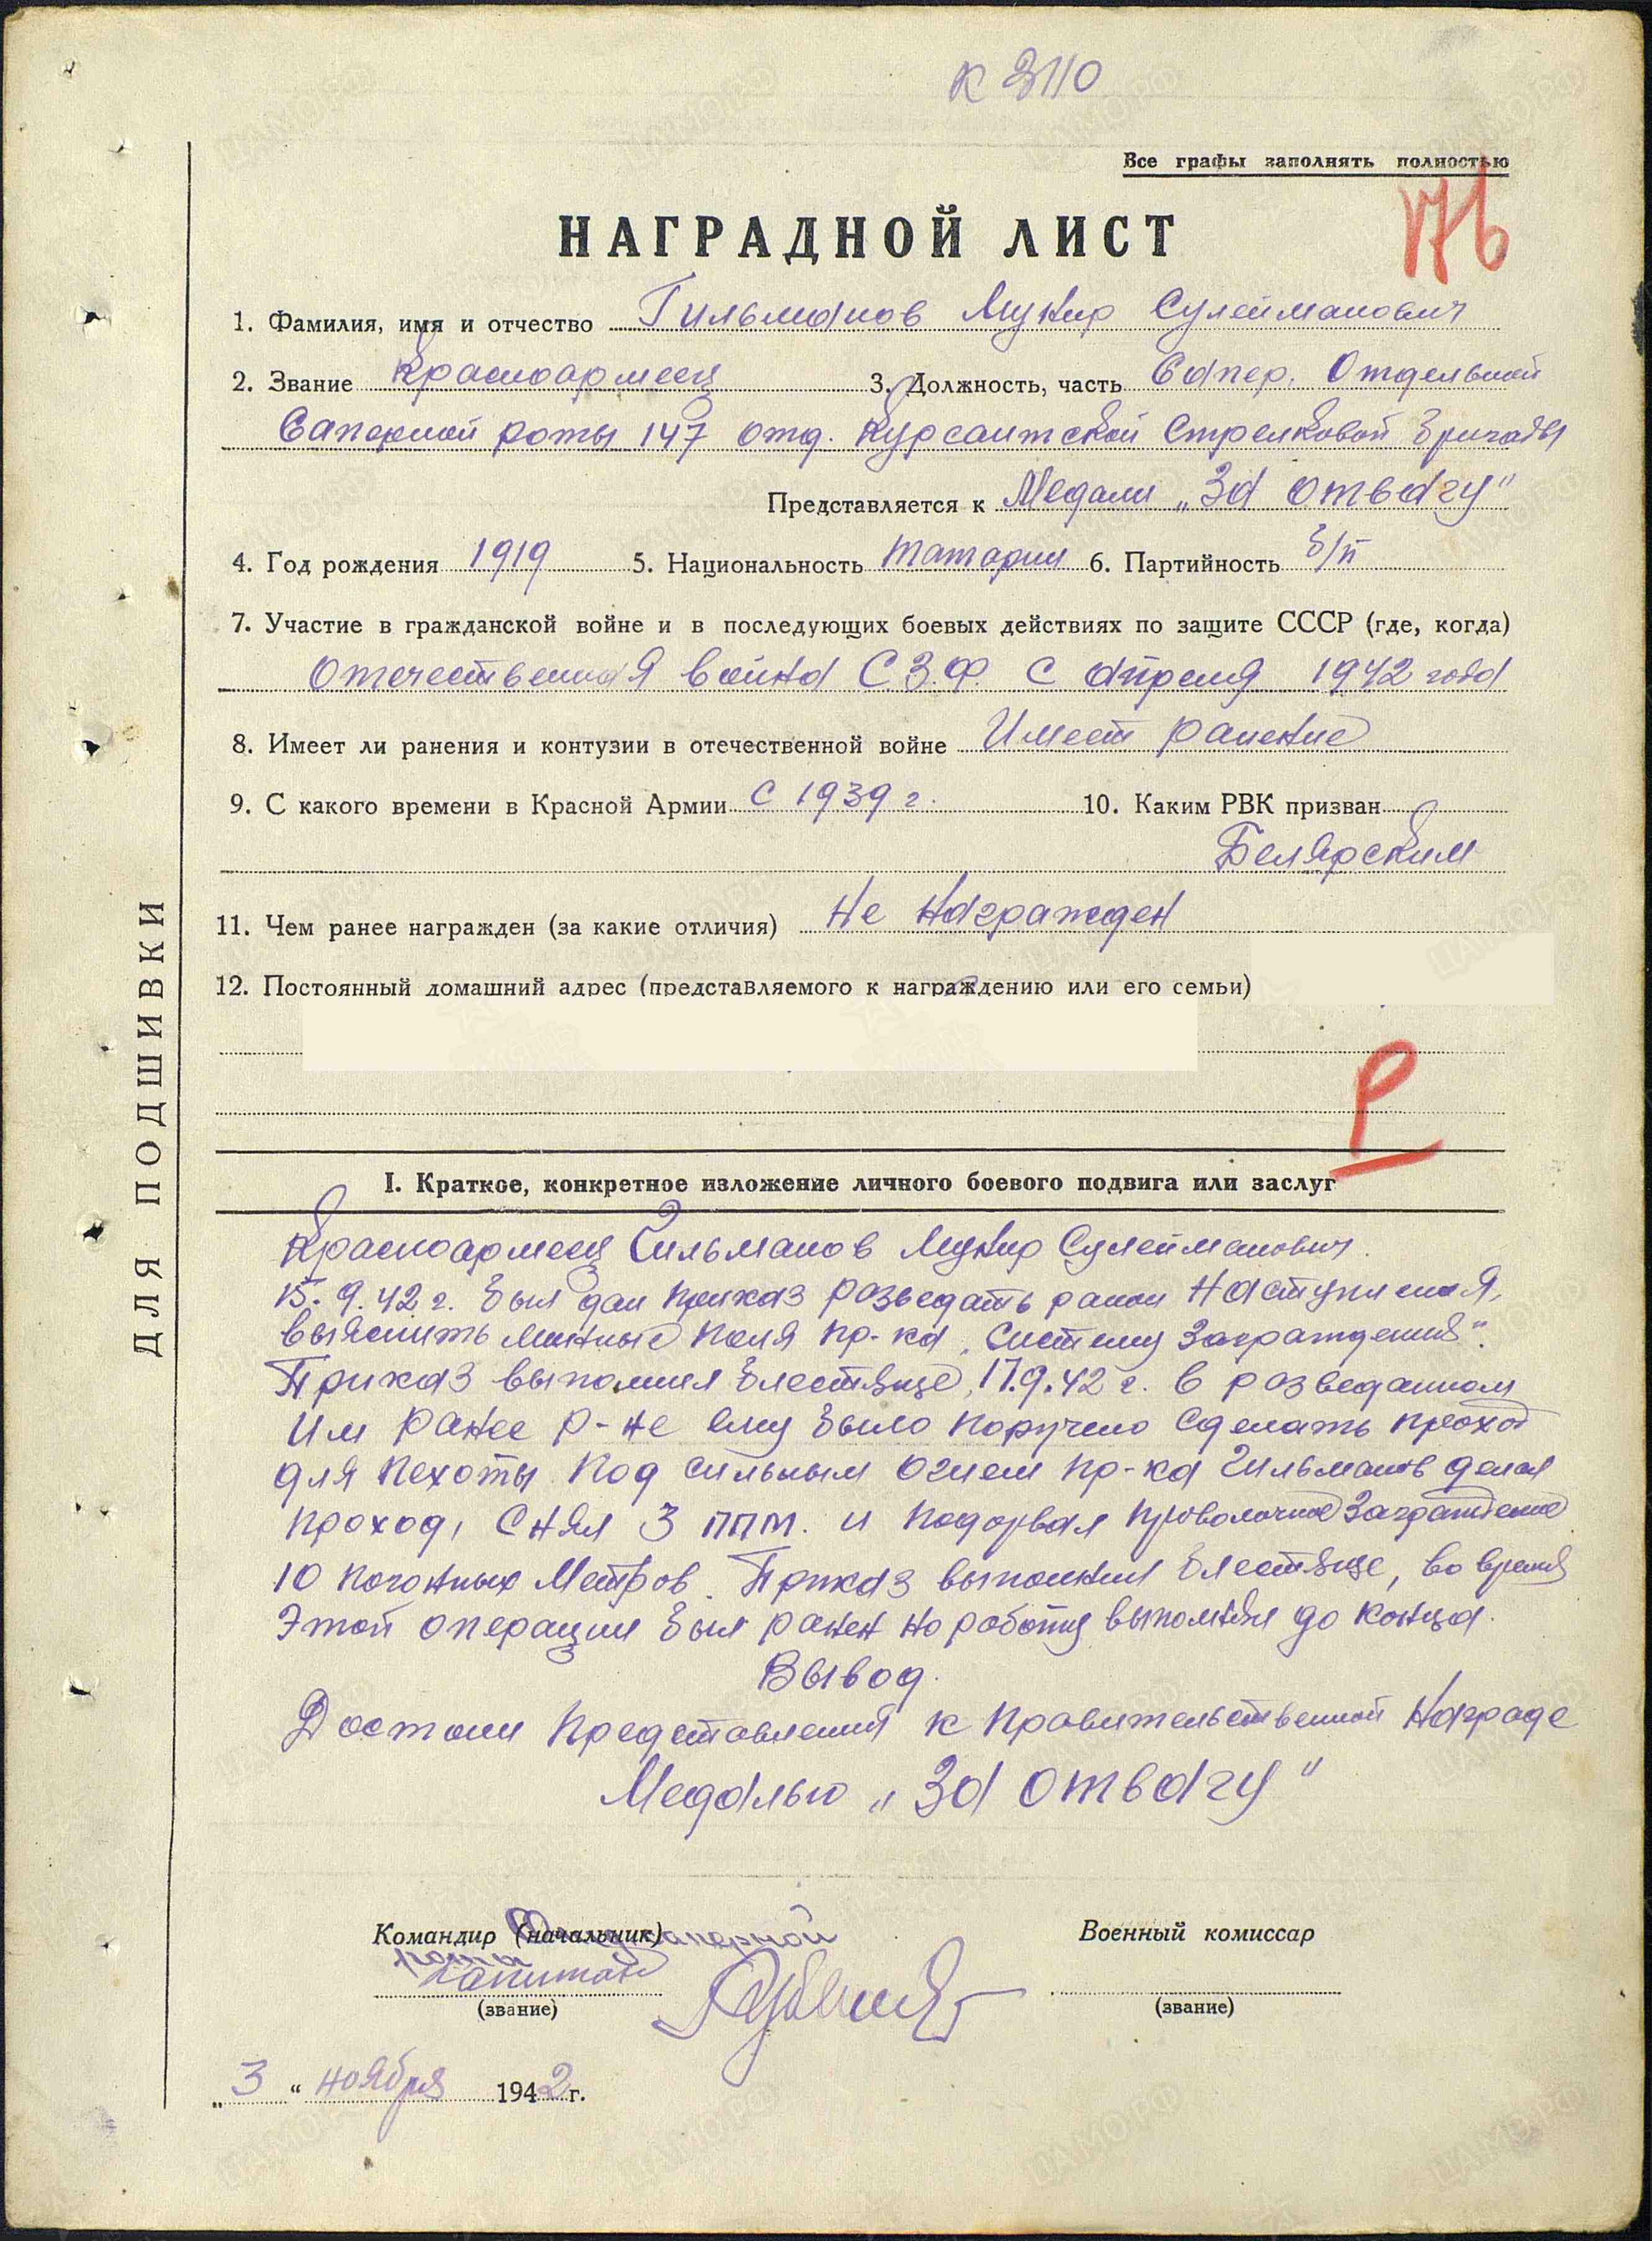 к 3110
Все графы заполнять полностью
176
НАГРАДНОЙ ЛИСТ
1. Фамилия, имя и отчество Гильманов Мунир Сулейманович
2. Звание Красноармеец 3. Должность, часть Сапер, Отдельной
Саперной роты 147 отд. Курсантской Стрелковой бригады
Представляется к Медали „За отвагу"
4. Год рождения 1919 5. Национальность татарин 6. Партийность б/п
7. Участие в гражданской войне и в последующих боевых действиях по защите СССР (где, когда)
Отечественная война С.З.Ф. с апреля 1942 года
8. Имеет ли ранения и контузии в отечественной войне Имеет ранение
9. С какого времени в Красной Армии с 1939 г. 10. Каким РВК призван
Белярским
11. Чем ранее награжден (за какие отличия) не награжден
12. Постоянный домашний адрес (представляемого к награждению или его семьи)
Р
I. Краткое, конкретное изложение личного боевого подвига или заслуг
Красноармеец Гильманов Мунир Сулейманович.
15.9.42 г. был дан приказ разведать район наступления,
выяснить минные поля пр-ка, систему заграждения".
Приказ выполнил блестяще, 17.9.42 г. в разведанном
им ранее р-не ему было поручено сделать проход
для пехоты. Под сильным огнем пр-ка Гильманов делая
проход, снял 3 ппм. и подорвал проволочное заграждение
10 погонных метров. Приказ выполнил блестяще, во время
этой операции был ранен но работу выполнил до конца.
Вывод.
Достоин представления к правительственной награде
Медалью „За отвагу"
Командир (начальник) саперной
роты
капитан
(звание)
Военный комиссар
(звание)
„3" ноября 1942 г.
ДЛЯ ПОДШИВКИ
ЦАМО.РФ